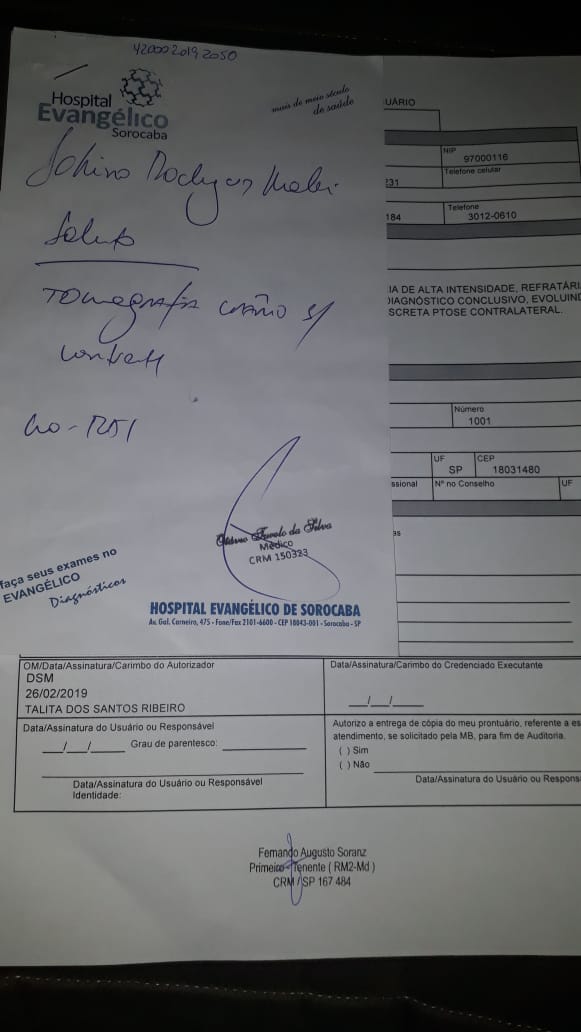 42000 2019 2050
Hospital
Evangélico
Sorocaba
mais de meio século
de saúde
Rodrigues
Solicito
Tomografia crânio s/
contraste
faça seus exames no
EVANGÉLICO
Diagnósticos
da Silva
Médico
CRM 150323
HOSPITAL EVANGÉLICO DE SOROCABA
Av. Gal. Carneiro, 475 - Fone/Fax 2101-6600 - CEP 18043-001 - Sorocaba - SP
UÁRIO
NIP
97000116
Telefone celular
231
Telefone
184
3012-0610
IA DE ALTA INTENSIDADE, REFRATÁRI
DIAGNÓSTICO CONCLUSIVO, EVOLUIND
SCRETA PTOSE CONTRALATERAL.
Número
1001
UF
SP
CEP
18031480
ssional
Nº no Conselho
UF
as
OM/Data/Assinatura/Carimbo do Autorizador
DSM
26/02/2019
TALITA DOS SANTOS RIBEIRO
Data/Assinatura/Carimbo do Credenciado Executante
__/__/____
Data/Assinatura do Usuário ou Responsável
__/__/____ Grau de parentesco:
Data/Assinatura do Usuário ou Responsável
Identidade:
Autorizo a entrega de cópia do meu prontuário, referente a es
atendimento, se solicitado pela MB, para fim de Auditoria.
( ) Sim
( ) Não
Data/Assinatura do Usuário ou Respons
Fernando Augusto Soranz
Primeiro-Tenente ( RM2-Md )
CRM / SP 167 484